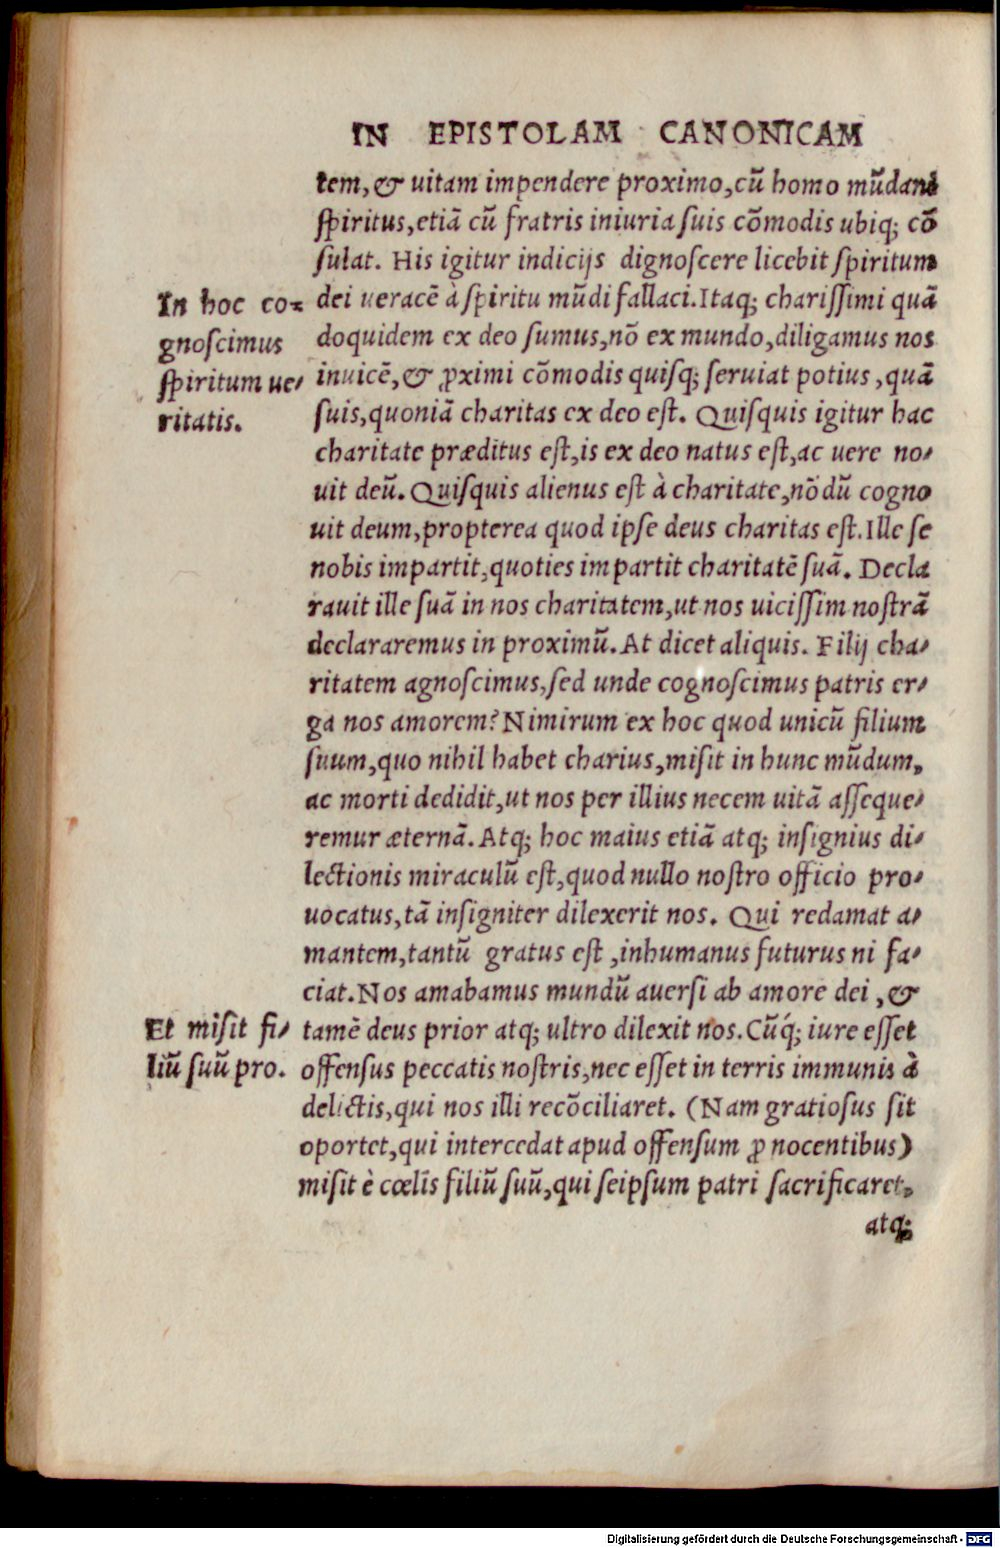 IN EPISTOLAM CANONICAM
tem,& uitam impendere proximo,cũ homo mũdani
ſpiritus,etiã cũ fratris iniuria ſuis cõmodis ubiq; cõ
ſulat. His igitur indicijs dignoſcere licebit ſpiritum
dei ueracẽ à ſpiritu mũdi fallaci.Itaq; chariſſimi quã
doquidem ex deo ſumus,nõ ex mundo,diligamus nos
inuicẽ,& ꝓximi cõmodis quiſq; ſeruiat potius,quã
ſuis,quoniã charitas ex deo eſt. Quiſquis igitur hac
charitate præditus eſt,is ex deo natus eſt,ac uere no-
uit deũ. Quiſquis alienus eſt à charitate,nõdũ cogno
uit deum,propterea quod ipſe deus charitas eſt.Ille ſe
nobis impartit,quoties impartit charitatẽ ſuã. Decla
rauit ille ſuã in nos charitatem,ut nos uiciſſim noſtrã
declararemus in proximũ.At dicet aliquis. Filij cha-
ritatem agnoſcimus,ſed unde cognoſcimus patris er-
ga nos amorem? Nimirum ex hoc quod unicũ filium
ſuum,quo nihil habet charius,miſit in hunc mũdum,
ac morti dedidit,ut nos per illius necem uitã aſſeque-
remur æternã. Atq; hoc maius etiã atq; inſignius di-
lectionis miraculũ eſt,quod nullo noſtro officio pro-
uocatus,tã inſigniter dilexerit nos. Qui redamat a-
mantem,tantũ gratus eſt,inhumanus futurus ni fa-
ciat.Nos amabamus mundũ auerſi ab amore dei,&
tamẽ deus prior atq; ultro dilexit nos.Cũq́; iure eſſet
offenſus peccatis noſtris,nec eſſet in terris immunis à
delictis,qui nos illi recõciliaret. (Nam gratioſus ſit
oportet,qui intercedat apud offenſum ꝓ nocentibus)
miſit è cœlis filiũ ſuũ,qui ſeipſum patri ſacrificaret,
atq;
In hoc co-
gnoſcimus
ſpiritum ue-
ritatis.
Et miſit fi-
liũ ſuũ pro.
Digitalisierung gefördert durch die Deutsche Forschungsgemeinschaft - DFG